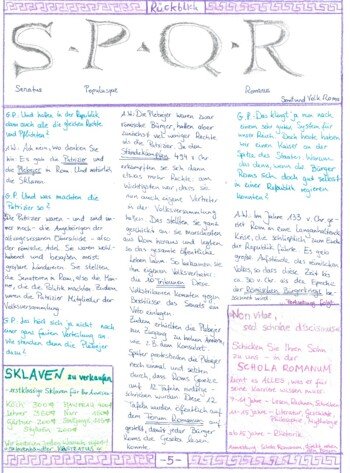 Rückblick
S·P·Q·R
Senatus
Populusque
Romanus
Senat und Volk Roms
G.P. Und hatten in der Republik
dann auch alle die gleichen Rechte
und Pflichten?
A.W. Ach nein, wo denken Sie
hin. Es gab die Patrizier und
die Plebejer in Rom. Und natürlich
die Sklaven.
G.P. Und was machten die
Patrizier so?
Die Patrizier waren - und sind im-
mer noch - die Angehörigen der
alteingesessenen Oberschicht - also
der römische Adel. Sie waren wohl-
habend und besaßen meist
großere Ländereien. Sie stellten
die Senatoren in Rom, also die Män-
ner, die die Politik machten. Zudem
waren die Patrizier Mitglieder der
Volksversammlung.
G.P. Das hört sich ja nicht nach
einer ganz fairen Verteilung an.
Wie standen denn die Plebejer
dazu?
SKLAVEN zu verkaufen
erstklassige Sklaven für Ihr Anwesen
Köche 300 D
Lehrer 300 D
Gärtner 200 D
A.W. Die Plebejer waren zwar
römische Bürger, hatten aber
zunächst viel weniger Rechte
als die Patrizier. In den
Ständekämpfen 494 v. Chr
erkämpften sie sich dann
etwas mehr Rechte. Am
wichtigsten war, dass sie
nun auch eigene Vertreter
in der Volksversammlung
hatten.
aus Rom hinaus und legten
so das gesamte öffentliche
Leben lahm. So bekamen sie
ihre eigenen Vertreter,
die 10 Tribunen. Diese
Volkstribunen konnten gegen
Beschlüsse des Senats ein
Veto einlegen.
Zudem erhielten die Plebejer
den Zugang zu hohen Ämtern,
wie z.B. dem Konsulat.
Später protestierten die Plebejer
noch einmal und setzten
durch, dass Roms Gesetze
auf 12 Tafeln
geschrieben wurden. Diese 12
Tafeln wurden öffentlich auf
dem Forum Romanum auf-
gestellt, damit jeder Bürger
Roms die Gesetze lesen
konnte.
G.P. Das klingt ja nun nach
einem sehr guten System für
unser Reich. Doch heute haben
wir einen Kaiser an der
Spitze des Staates. Warum
das denn, wenn die Bürger
Roms sich doch gut selbst
in einer Republik regieren
konnten?
A.W. Im Jahre 133 v. Chr. ge-
riet Rom in eine langanhaltende
Krise, die schließlich zum Ende
der Republik führte. Es gab
große Aufstände des römischen
Volkes, so dass diese Zeit bis
30 v. Chr. als die Epoche
der Römischen Bürgerkriege be-
zeichnet wird.
Fortsetzung folgt
Non vitae,
sed scholae discimus
Schicken Sie Ihren Sohn
zu uns - in der
SCHOLA ROMANUM
lernt er ALLES, was er für
seine Karriere wissen muss:
7-11 Jahre - Lesen, Rechnen, Schreiben
11-15 Jahre - Literatur, Geschichte
Philosophie
ab 15 Jahre - Rhetorik
-5-